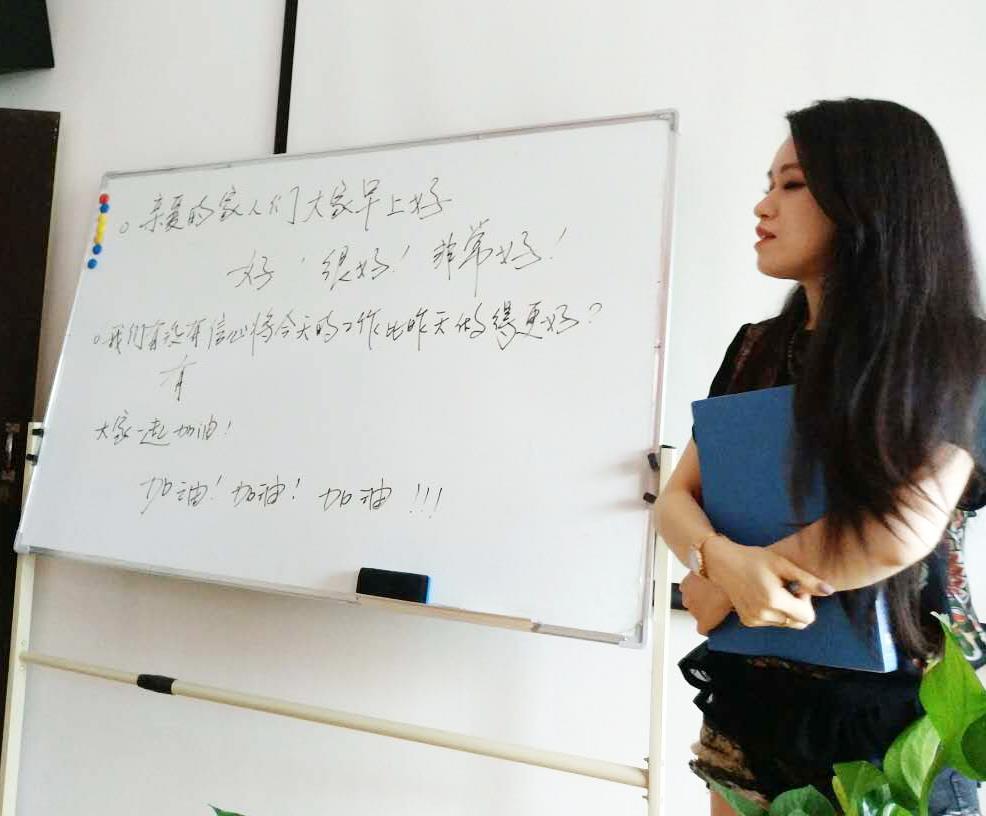 。亲爱的家人们大家早上好
好！很好！非常好！
。我们有没有信心将今天的工作比昨天做得更好？
有
大家一起加油！
加油！加油！加油！！！